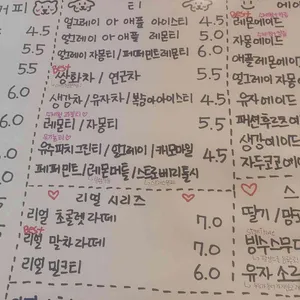 커피
티
에이
5.5
얼그레이 아 애플 아이스티 4.5
얼그레이 아 애플 레몬티
6.0
얼그레이 자몽티 / 페퍼민트레몬티 6.0
Best
5.5
쌍화차 / 연근차 5.5
6.0
생강차 / 유자차 / 복숭아아이스티 4.5
레몬티 / 자몽티 5.5
유슈파치그린티 / 얼그레이 / 캐모마일 4.5
페퍼민트 / 레몬머틀 /
레몬에이드
자몽에이드
애플레몬에이드
얼그레이 자몽
유자에이드
패션후르츠에이
생강에이드
자두코코에이드
리얼 시리즈
리얼 초콜렛라떼 7.0
Best
리얼 말차라떼 7.0
리얼 밀크티 6.0
스
딸기 /
유자